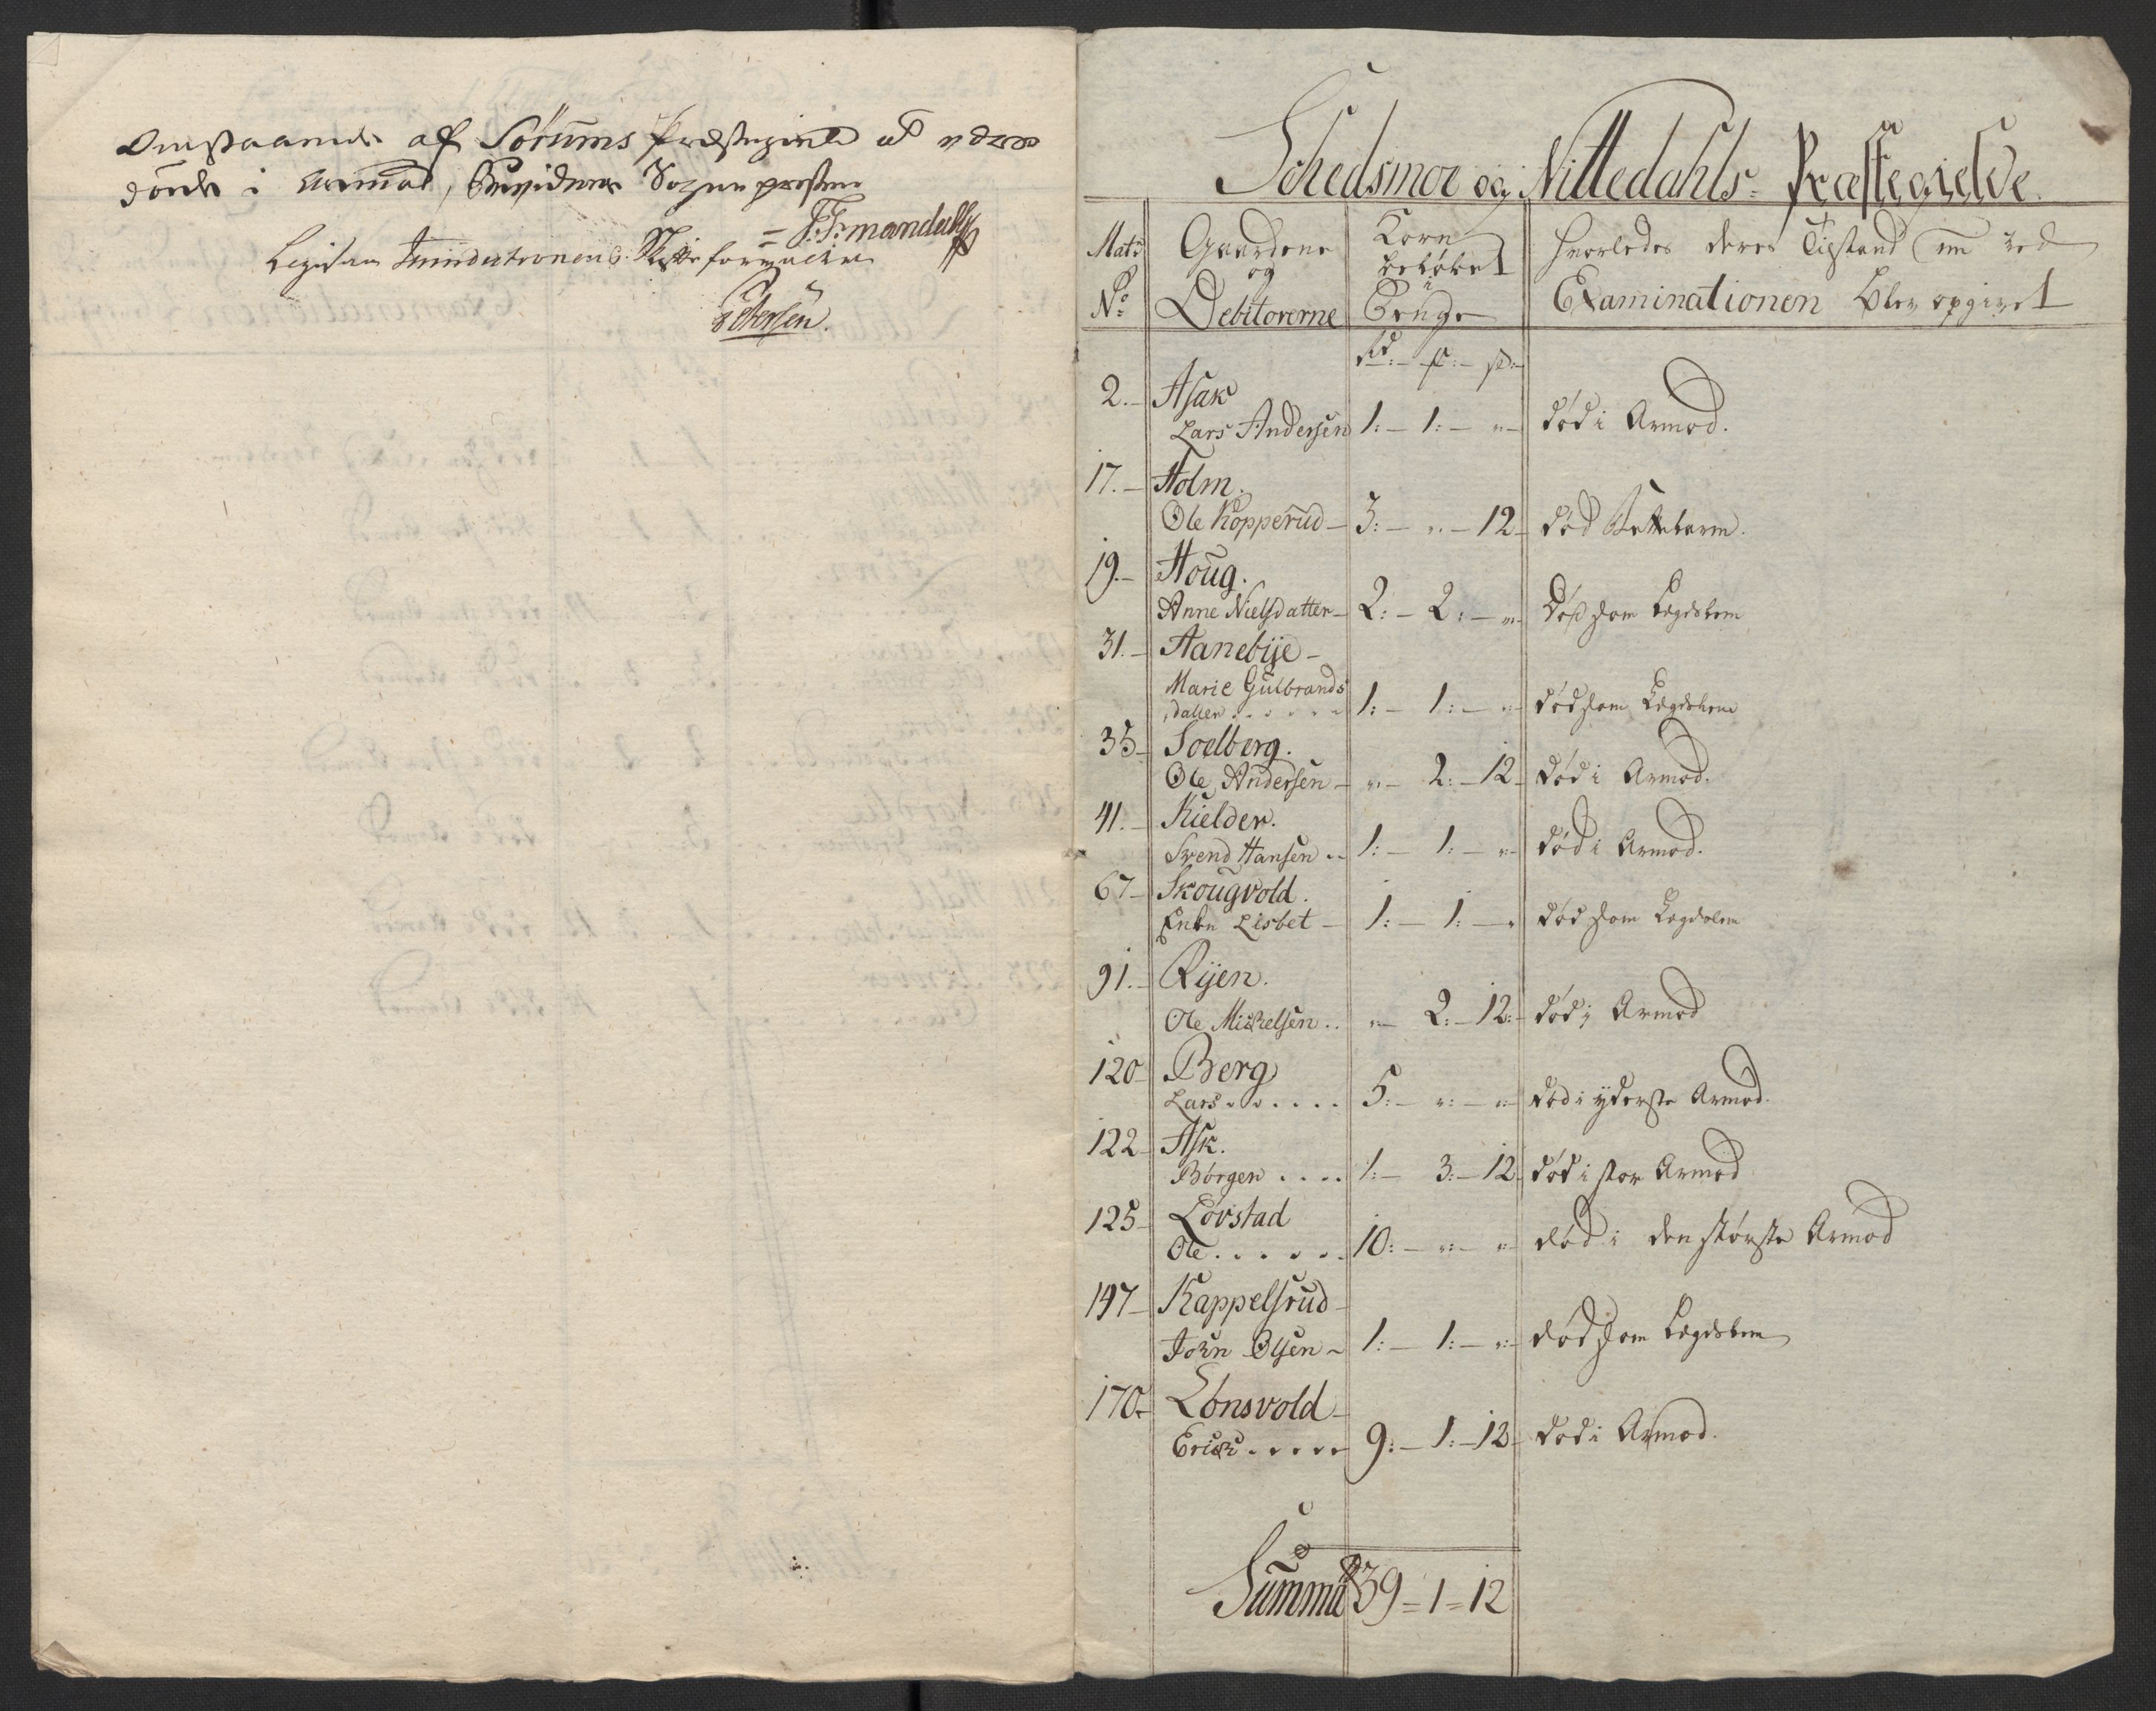 Omstaaende af Sørums Præstegield at være
døede i Armod, bevidner Sogne præsten
F: F: mandahl
Ligesaa
Petersen.
Schedsmoe og Nittedahls Præstegielde.
Matr No
Gaardene og Debitorerne
Korn beløbet i Penge
Hvorledes deres Tilstand nu ved Examinationen blev opgivet
rd:- ß:-
2.- Asak
Lars Andersen 1:- 1:- "- død i Armod.
17.- Holm.
Ole Kopperud- 3:- "- 12- død
19.- Houg.
Anne Nielsdatter- 2:- 2:- "- død som Legdslem
31.- Aanebÿe-
Marie Gulbrands
datter...... 1:- 1:- "- død som Legdslem
35- Soelberg.
Ole Andersen- "- 2:- 12- død i Armod.
41.- Kielder.
Svend Hansen.. 1:- 1:- "- død i Armod.
67- Skougvold.
Enke Lisbet- 1:- 1:- " død som Legdslem
91.- Rÿen.
Ole Mickelsen.. "- 2:- 12:- død i Armod
120- Berg
Lars...... 5:- ":- "- død i yderste Armod.
122- Ask.
Børgen.... 1:- 3:- 12- død i stor Armod
125- Løvstad
Ole...... 10:- ":- "- død i den største Armod
147- Kappelsrud-
John Olsen- 1:- 1:- "- død som Legdslem
170- Lønsvold-
Erick..... 9:- 1:- 12- død i Armod.
Summa 39 = 1 = 12